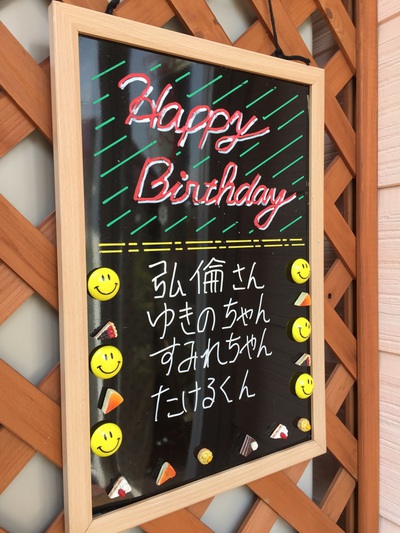 Happy
Birthday
弘倫さん
ゆきのちゃん
すみれちゃん
たけるくん